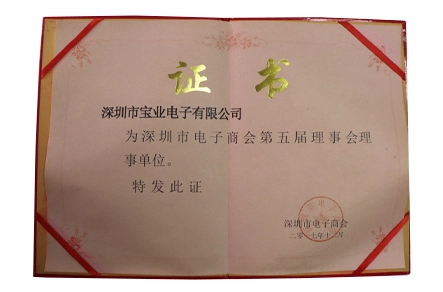 证书
深圳市宝业电子有限公司
为深圳市电子商会第五届理事会理
事单位。
特发此证
深圳市电子商会
二〇一七年十二月